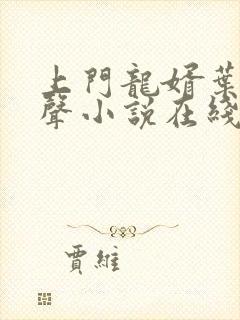 上門龍婿葉
聲小說在綫
賈維